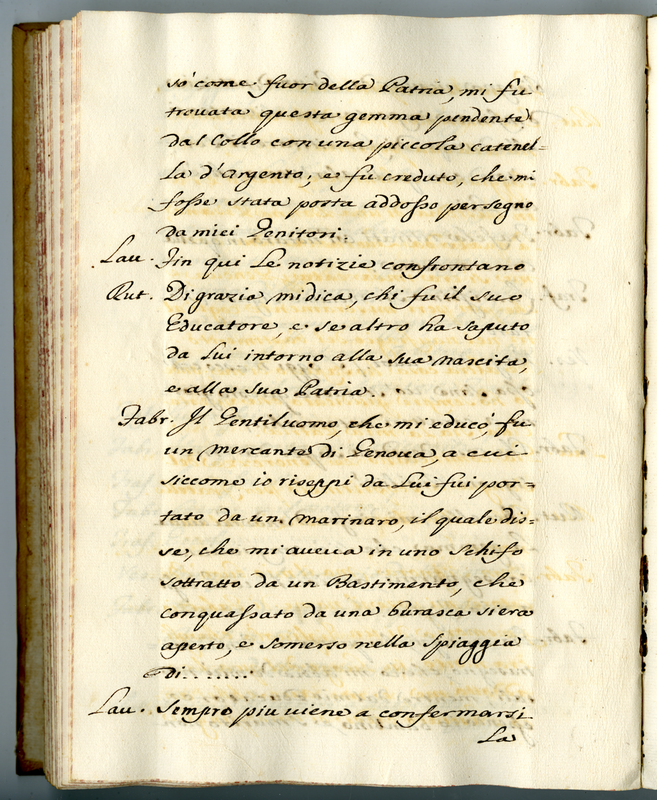 sò come fuor della Patria, mi fu
trovata questa gemma pendente
dal Collo con una piccola catenel=
la d'Argento; e fu creduto, che mi
fosse stata posta addosso per segno
da miei Genitori.
Lau. Fin qui le notizie confrontano
Rut. Di grazia mi dica, chi fu il suo
Educatore, e se altro ha saputo
da Lui intorno alla sua nascita,
e alla sua Patria.
Fabr. Il Gentiluomo, che mi educó, fu
un mercante di Genova, a cui
siccome io riseppi da Lui fui por=
tato da un marinaro, il quale dis=
se, che mi aveva in uno schifo
sottratto da un Bastimento, che
conquassato da una burasca si era
aperto, e somerso nella spiaggia
di......
Lau. Sempre piu viene a confermarsi
La